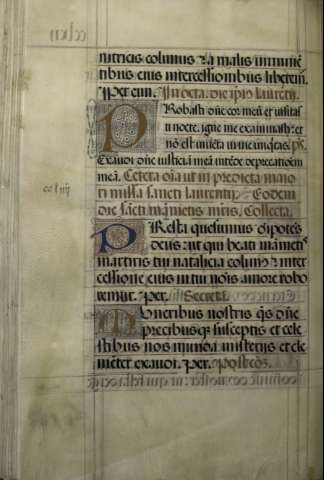 nitricis colimus & a malis imminē
tibus eius intercessionibus liberem᷑.
Per eun. In octa. die ip̄ius laurētii.
PRobasti dn̄e cor meū et visitas
ti nocte. igne me examinasti: et
nō est inuēta in me iniquitas. ps̄.
Exaudi dn̄e iusticiā meā intēde deprecationem
meā. Cetera oīa ut in predicta maio
ri missa sancti laurentij. Eodem
die Sācti mametis m̄ris. Collecta.
PResta quesumus oīpotēs
deus: ut qui beati mametis
martiris tui natalicia colim9 inter
cessione eius in tui noīs amore robo
remur. Per. Secreta.
MUneribus nostris q̄s dn̄e
precibusq; susceptis et cele
stibus nos munda misterijs et cle
mēter exaudi. Per. Postcōō.